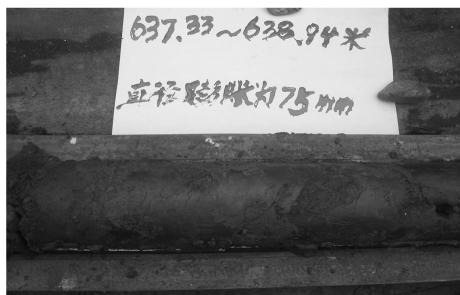 637.33~638.94米
直径膨胀为75mm